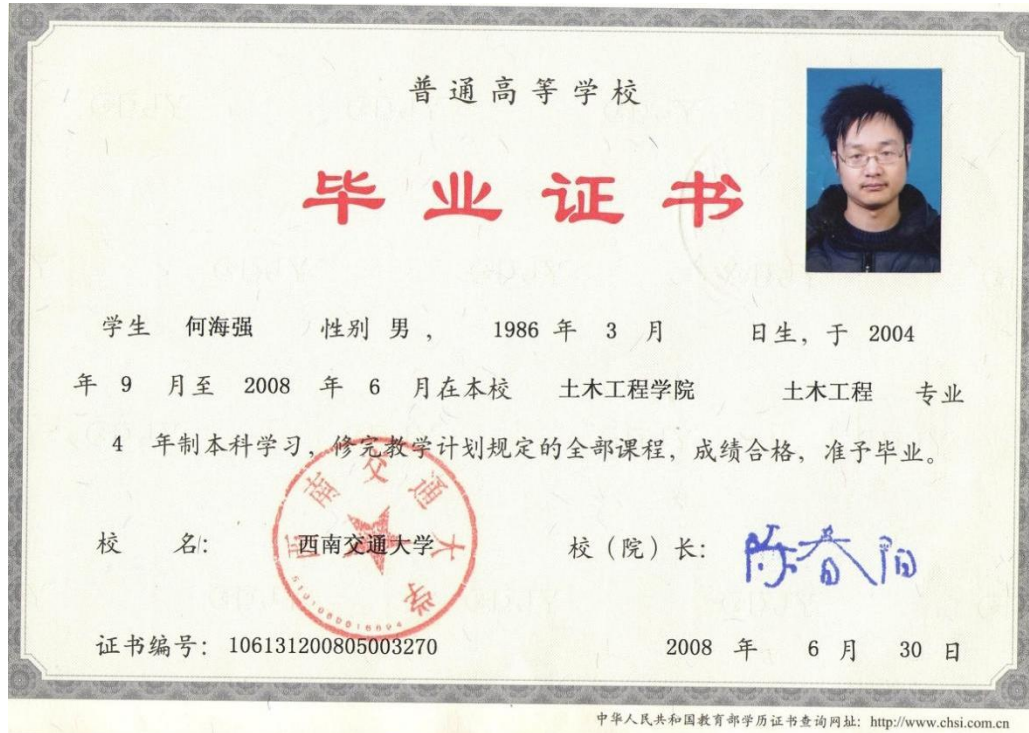 普通高等学校
毕业证书
学生 何海强 性别 男 , 1986 年 3 月 日生, 于 2004
年 9 月至 2008 年 6 月在本校 土木工程学院 土木工程 专业
4 年制本科学习, 修完教学计划规定的全部课程, 成绩合格, 准予毕业。
校 名: 西南交通大学 校（院）长: 陈春阳
西南交通大学
证书编号: 106131200805003270 2008 年 6 月 30 日
中华人民共和国教育部学历证书查询网址: http://www.chsi.com.cn